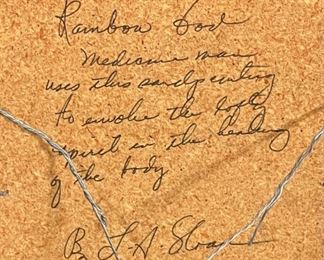 Rainbow God
Medicine man
uses this sandpainting
to envolve the holy
spirit in the healing
of the body
By L. A. Sloan